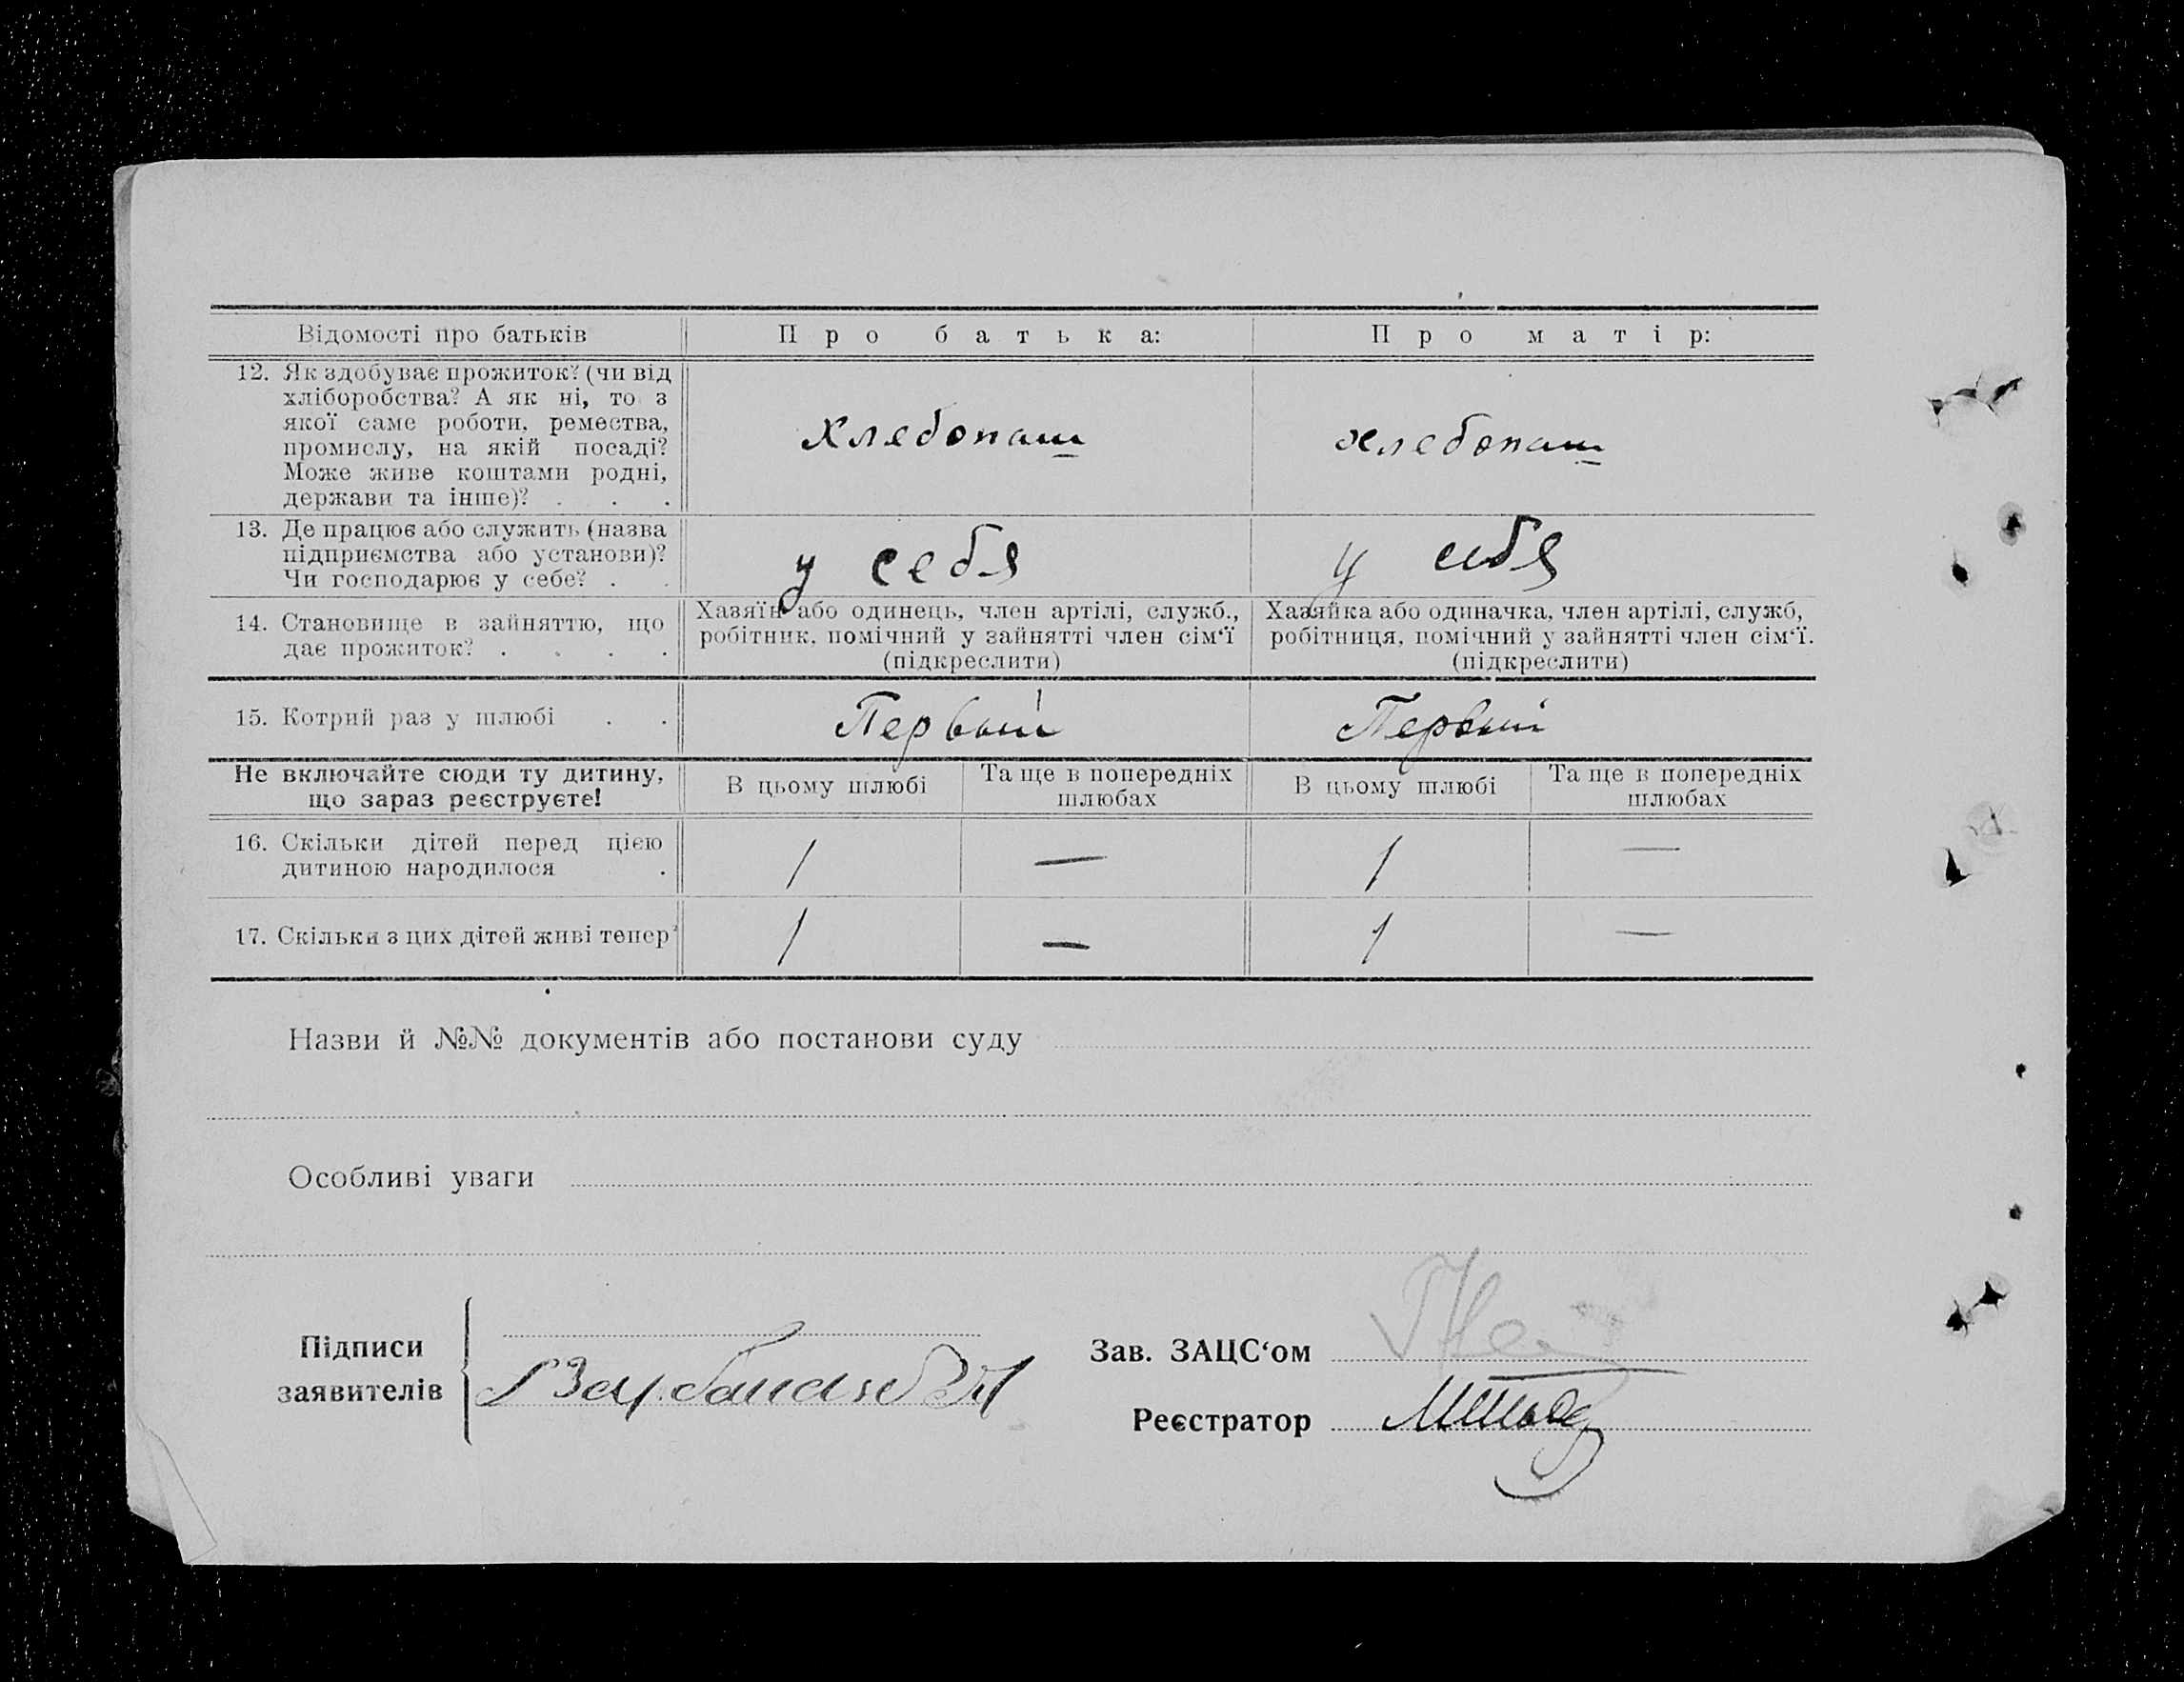 Відомості про батьків
Про батька:
Про матір:
12. Як здобуває прожиток? (чи від
хліборобства? А як ні, то з
якої саме роботи, ремества,
промислу, на якій посаді?
Може живе коштами родні,
держави та інше)? . . .
Хлебопаш
хлебопаш
13. Де працює або служить (назва
підприємства або установи)?
Чи господарює у себе? . .
у себя
у себя
14. Становище в зайняттю, що
дає прожиток? . . . .
Хазяїн або одинець, член артілі, служб.,
робітник, помічний у зайнятті член сім‘ї
(підкреслити)
Хазяйка або одиначка, член артілі, служб,
робітниця, помічний у зайнятті член сім‘ї.
(підкреслити)
15. Котрий раз у шлюбі . .
Первый
Первый
Не включайте сюди ту дитину,
що зараз реєструєте!
В цьому шлюбі
Та ще в попередніх
шлюбах
В цьому шлюбі
Та ще в попередніх
шлюбах
16. Скільки дітей перед цією
дитиною народилося .
1 — 1 —
17. Скільки з цих дітей живі тепер
1 — 1 —
Назви й №№ документів або постанови суду
Особливі уваги
Підписи
заявителів
Зав. ЗАЦС‘ом
Реєстратор